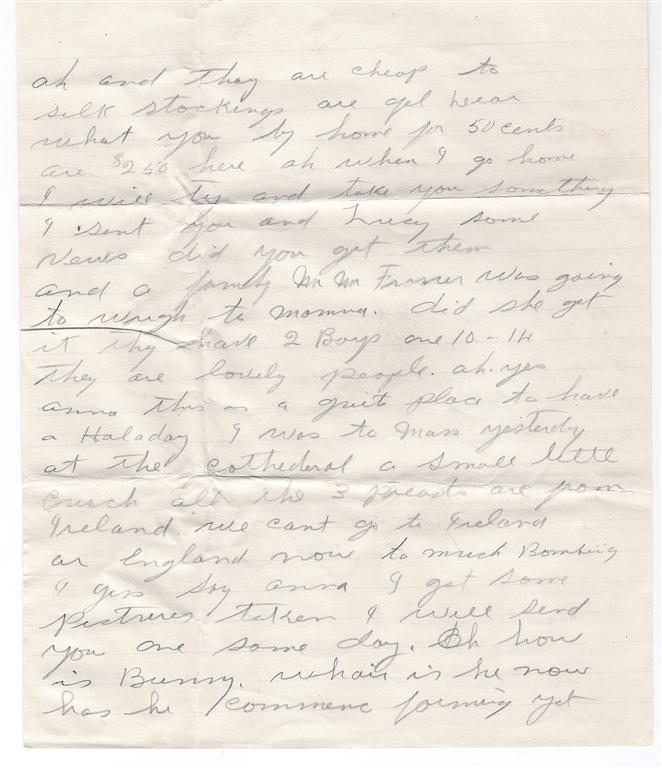 ah and thay are cheap to
silk stockings are
what you by home for 50 cents
are $2.50 here ah when I go home
I will try and take you something
I sent you and Lucy some
Vews did you get them
and a family Mr Mr Fraser was going
to wrigh to Momma. did she get
it thy have 2 Boys one 10 - 14
they are lovely people. ah. yes
anna this is a place to have
a Haladay I was to Mass yesterday
at the cothederal a small little
curch all the 3 preasts are from
Ireland we cant go to Ireland
or England now to much Bombing
I gess say anna I got some
Pistures taken I will send
you one some day. Oh how
is Bunny. whair is he now
has he commenc forming yet